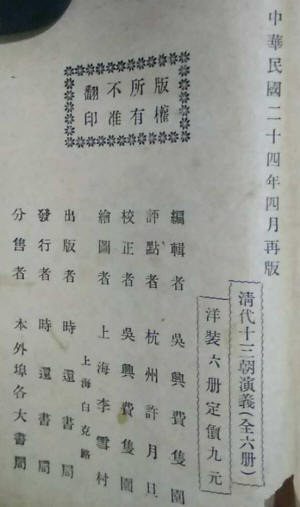 中華民國二十四年四月再版
版權
所有
不准
翻印
清代十三朝演義(全六册)
洋裝六册定價九元
編輯者 吳興費隻園
評點者 杭州許月旦
校正者 吳興費隻園
繪圖者 上海李雪村
上海白克路
出版者 時還書局
發行者 時還書局
分售者 本外埠各大書局